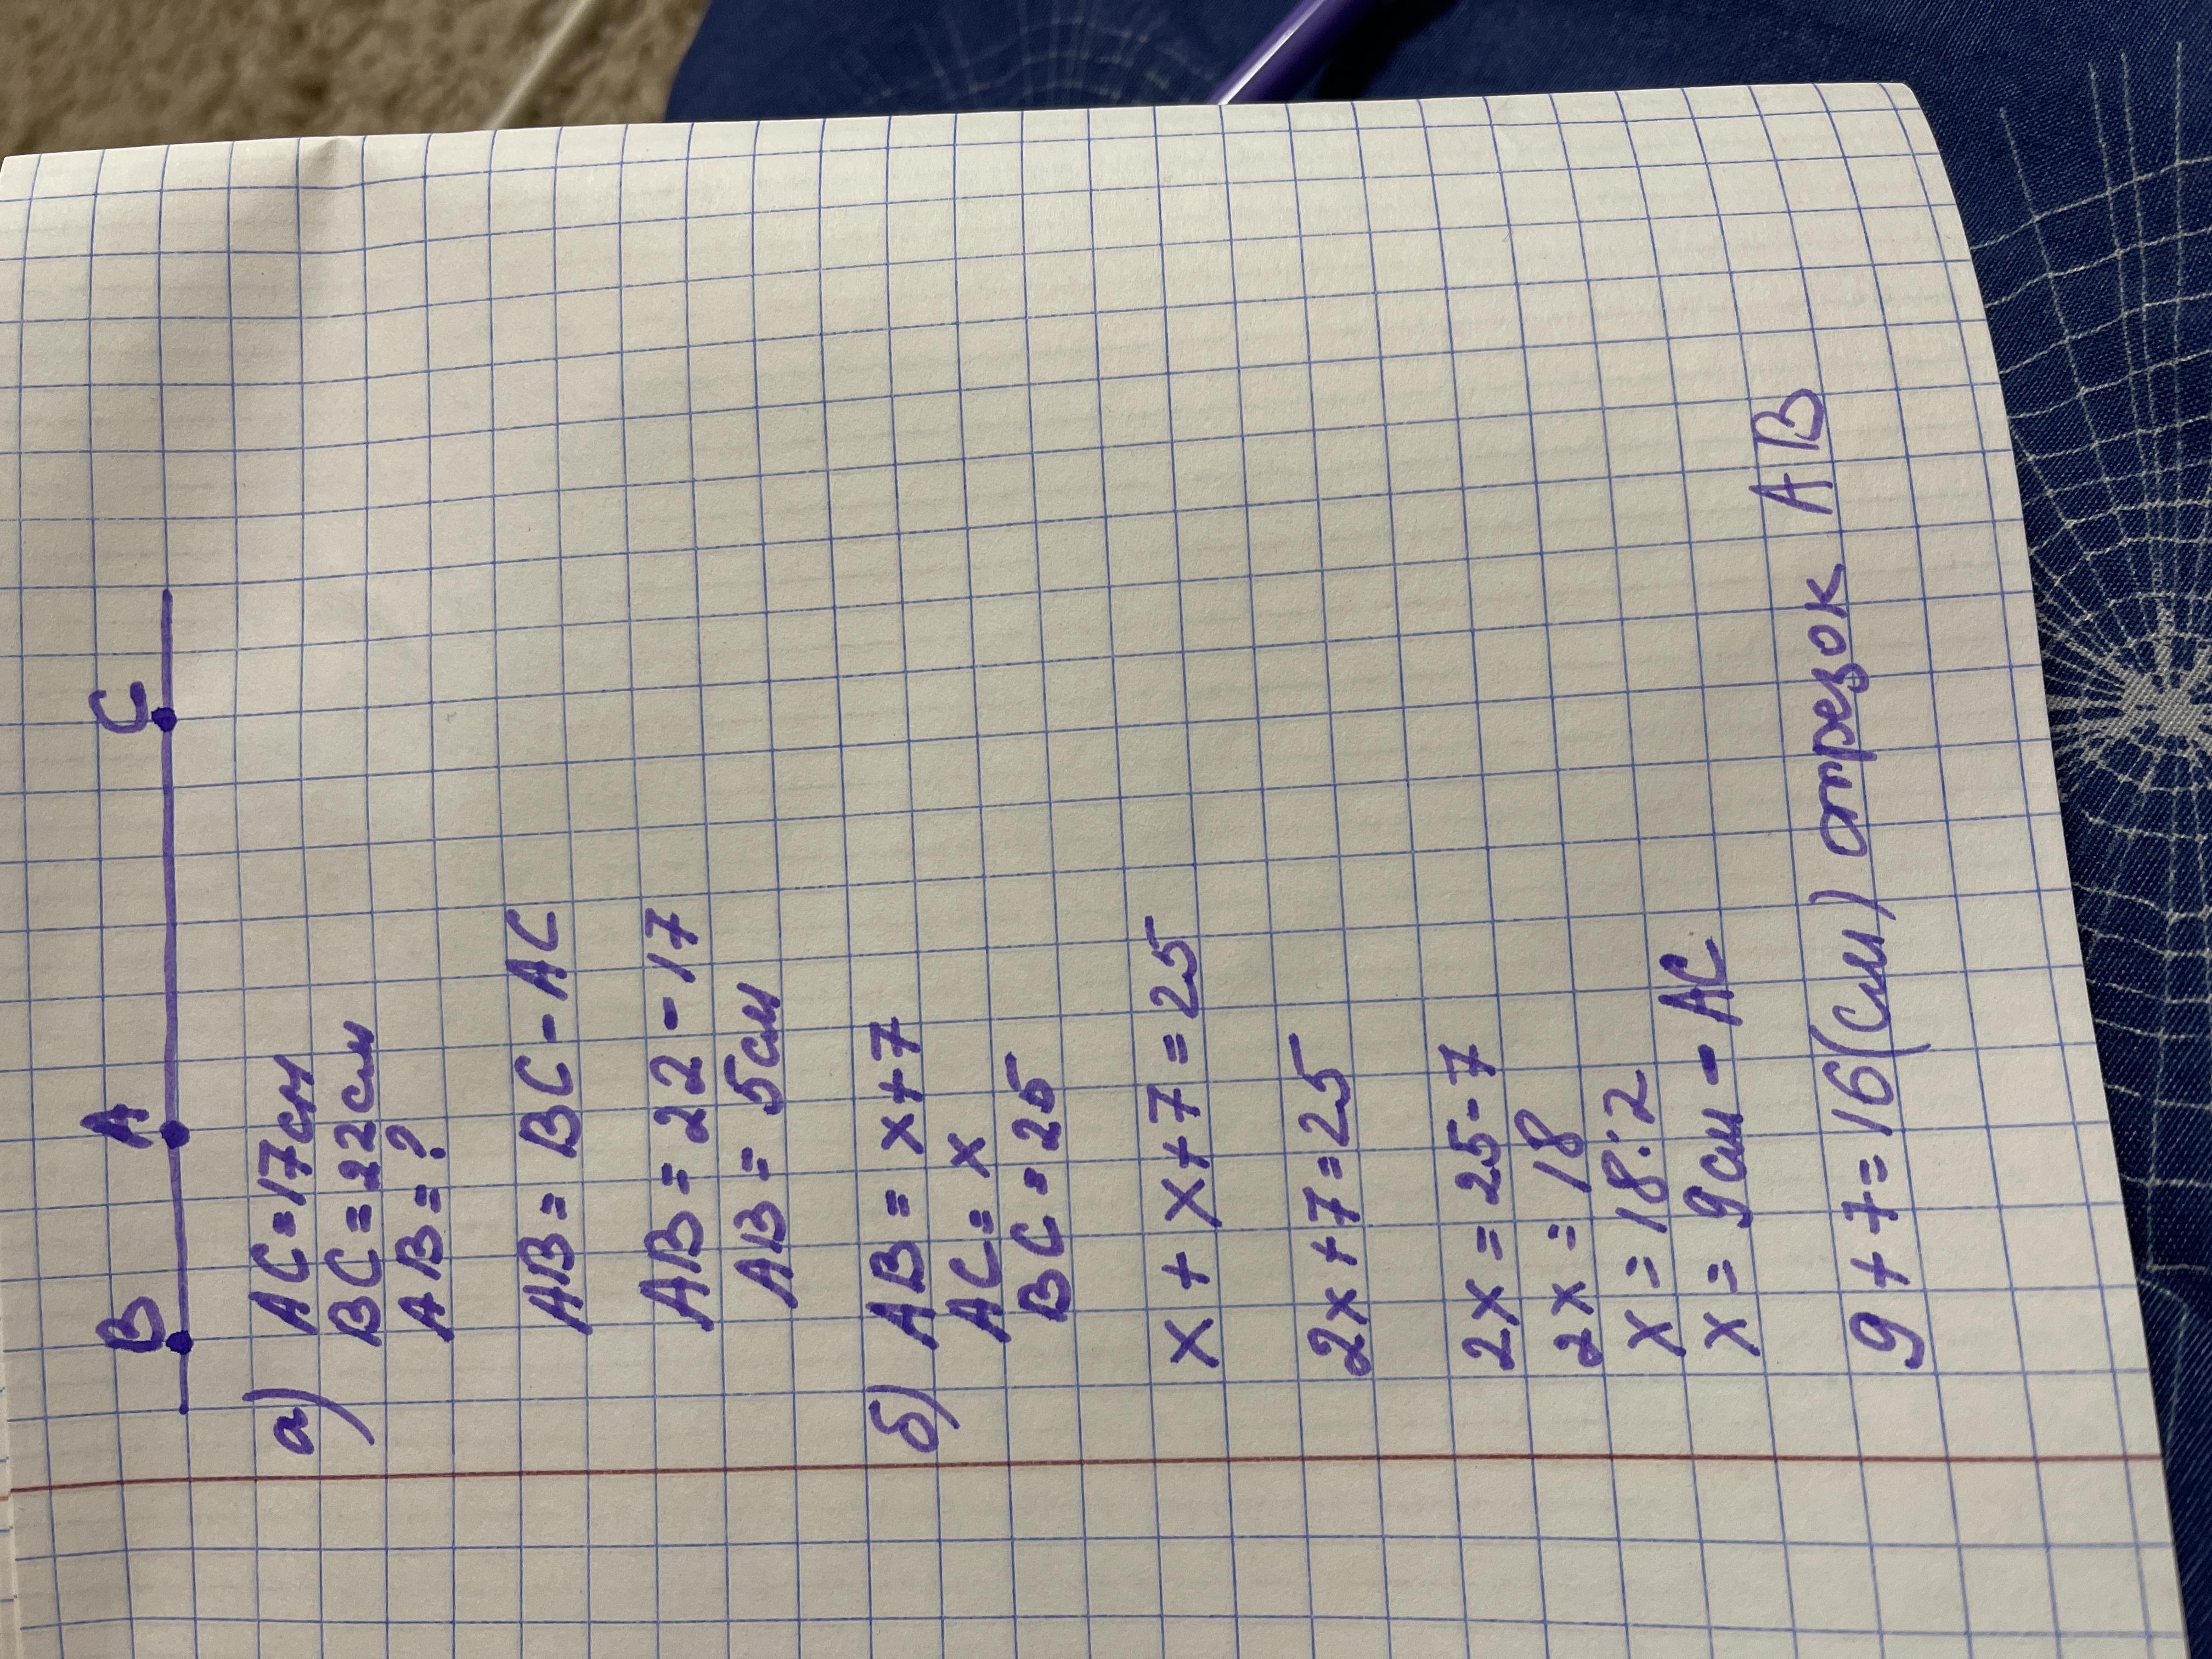 B A C
а) AC=17см
BC=22см
AB=?
AB=BC-AC
AB=22-17
AB=5см
б) AB=x+7
AC=x
BC=25
x+x+7=25
2x+7=25
2x=25-7
2x=18
x=18:2
x=9см-AC
9+7=16(см) отрезок AB